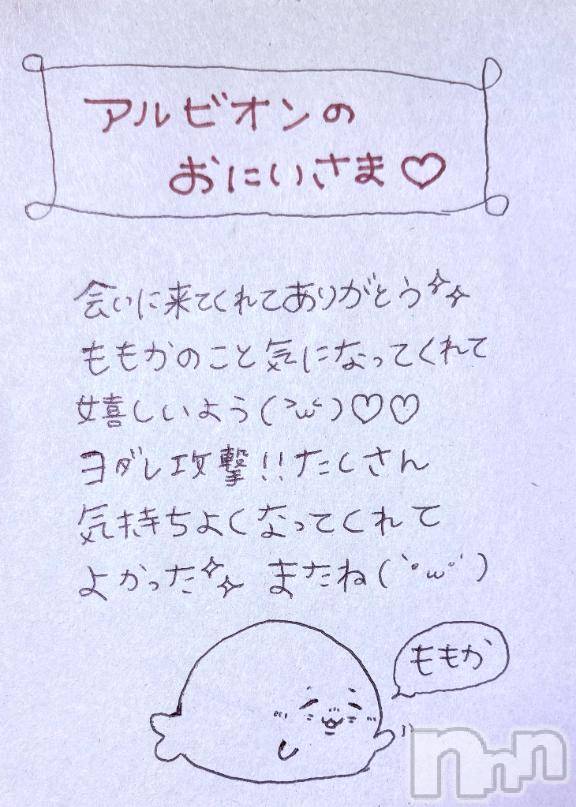 アルビオンの
おにいさま♡
会いに来てくれてありがとう✨
ももかのこと気になってくれて
嬉しいよう(>ω<)♡♡
ヨダレ攻撃!!たくさん
気持ちよくなってくれて
よかった✨またね(`･ω･´)
ももか
nnn